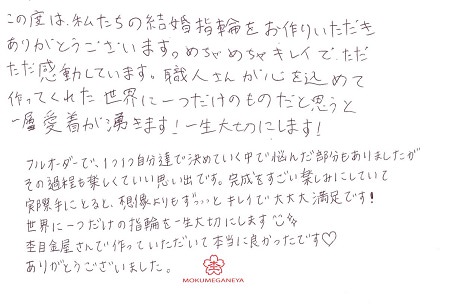 この度は、私たちの結婚指輪をお作りいただき
ありがとうございます。めちゃめちゃキレイで、ただ
ただ感動しています。職人さんが心を込めて
作ってくれた世界に一つだけのものだと思うと
一層愛着が湧きます!一生大切にします!
フルオーダーで、1つ1つ自分達で決めていく中で悩んだ部分もありましたが
その過程も楽しくていい思い出です。完成をすごい楽しみにしていて
実際手にとると、想像よりもずっっとキレイで大大大満足です!
世界に一つだけの指輪を一生大切にします
杢目金屋さんで作っていただいて本当に良かったです♡
ありがとうございました。
MOKUMEGANEYA